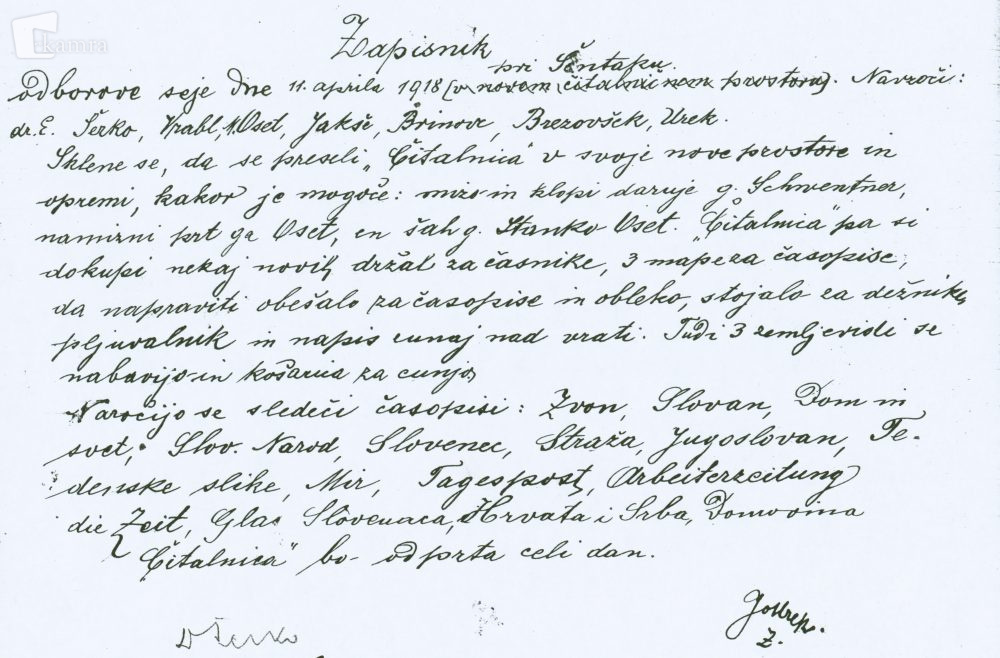 kamra
Zapisnik
pri Šentaku.
odborove seje dne 11. aprila 1918 (v novem čitalničnem prostoru). Navzoči:
dr. E. Šerko, Vrabl, M. Oset, Jakše, Brinovc, Brezovšek, Urek.
Sklene se, da se preseli „Čitalnica“ v svoje nove prostore in
opremi, kakor je mogoče: mizo in klopi daruje g. Schwentner,
namizni prt ga Oset, en šah g. Stanko Oset. „Čitalnica“ pa si
dokupi nekaj novih držal za časnike, 3 mape za časopise,
da napraviti obešalo za časopise in obleko, stojalo za dežnike,
pljuvalnik in napis zunaj nad vrati. Tudi 3 zemljevidi se
nabavijo in košarica za cunjo.
Naročijo se sledeči časopisi: Zvon, Slovan, Dom in
svet, Slov. Narod, Slovenec, Straža, Jugoslovan, Te-
denske slike, Mir, Tagespost, Arbeiterzeitung
die Zeit, Glas Slovenaca, Hrvata i Srba, Domovina
„Čitalnica“ bo odprta celi dan.
D Šerko